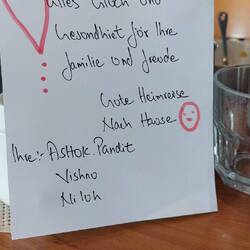 Alles Glück und
Gesondhiet för Ihre
familie und freude
Gute Heimreise
Nach Hause
Ihre:- ASHOK. Pandit
Vishnu